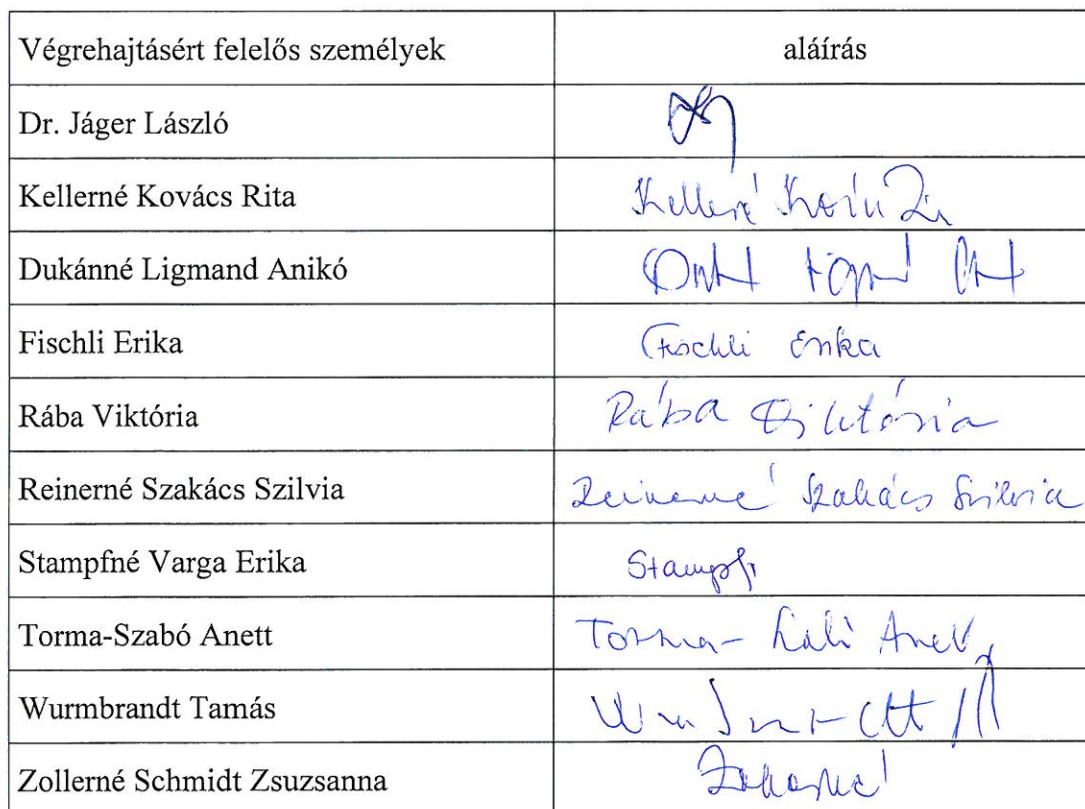 Végrehajtásért felelős személyek aláírás
Dr. Jáger László
Kellerné Kovács Rita Kellerné
Dukánné Ligmand Anikó
Fischli Erika Fischli Erika
Rába Viktória Rába Viktória
Reinerné Szakács Szilvia Reinerné Szakács Szilvia
Stampfné Varga Erika Stampfné
Torma-Szabó Anett Torma- Anett
Wurmbrandt Tamás
Zollerné Schmidt Zsuzsanna